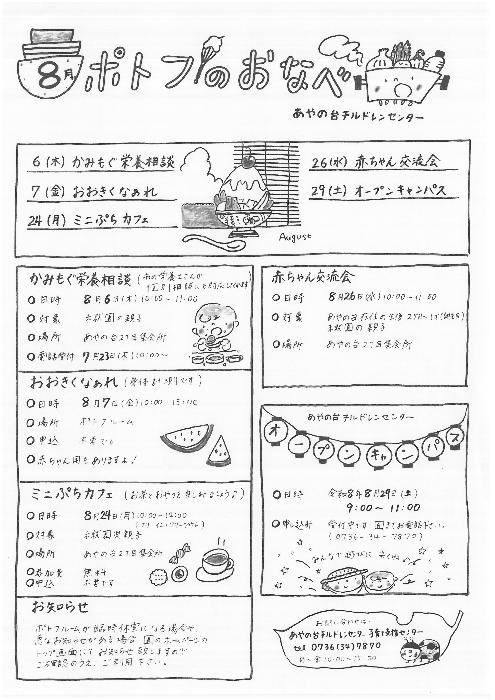 8月 ポトフのおなべ
あやの台チルドレンセンター
6(木) かみもぐ栄養相談
7(金) おおきくなぁれ
24(月) ミニぷちカフェ
26(水) 赤ちゃん交流会
29(土) オープンキャンパス
August
かみもぐ栄養相談
○日時 8月6日(木)10:00~11:00
○対象 未就園の親子
○場所 あやの台2丁目集会所
○受付 7月23日(木)10:00~
おおきくなぁれ (身体計測です)
○日時 8月7日(金)10:00~15:00
○場所 ポトフルーム
○申込 不要です
○赤ちゃん用もありますよ!
ミニぷちカフェ
○日時 8月24日(月)10:00~12:00
○対象 未就園児親子
○場所 あやの台2丁目集会所
○参加費 無料
○申込 不要です
お知らせ
ポトフルームが臨時休室になる場合や
急なお知らせがある場合 園のホームページの
トップ画面にてお知らせ致しますので
ご確認のうえ、ご利用下さい。
赤ちゃん交流会
○日時 8月26日(水)10:00~11:00
○対象
未就園の親子
○場所 あやの台2丁目集会所
あやの台チルドレンセンター
オープンキャンパス
○日時 令和8年8月29日(土)
9:00~11:00
○申込み 受付中です 園までお電話下さい。
(0736-34-7870)
みんなで遊びに来てね
お問い合わせは
あやの台チルドレンセンター 子育て支援センター
tel 0736(34)7870
月~金 10:00~15:00